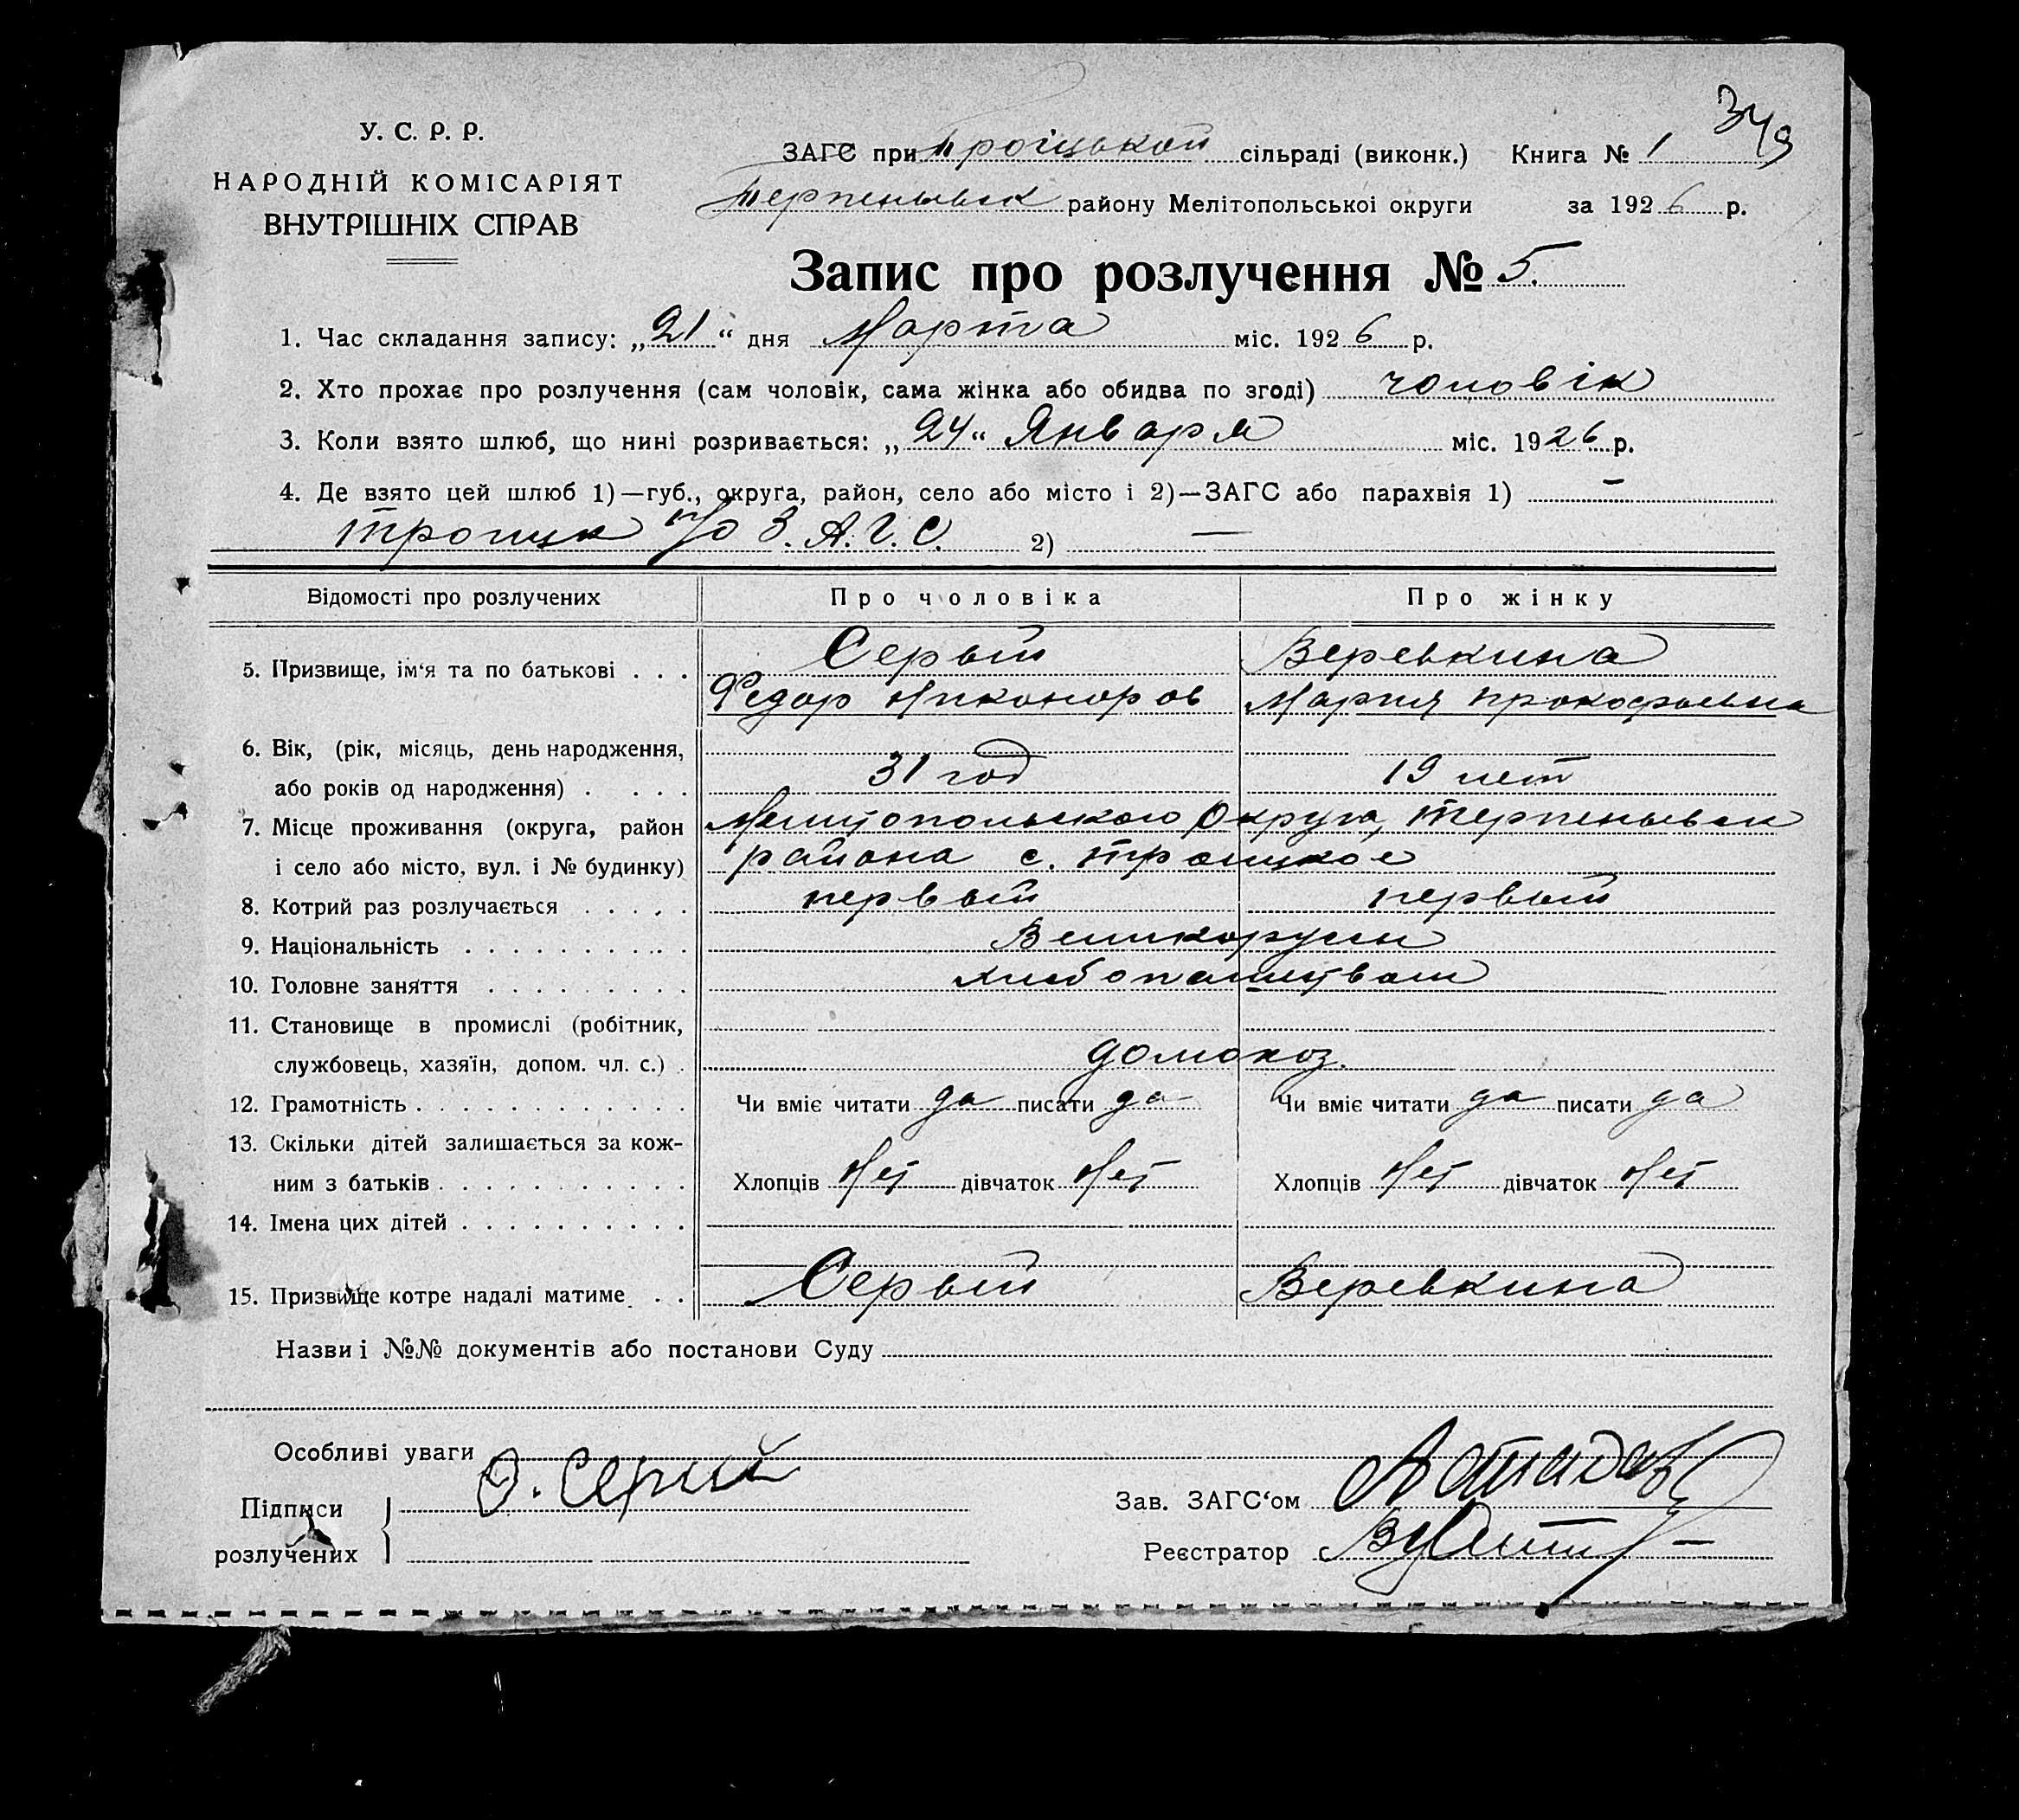 349
У. С. Р. Р.
НАРОДНІЙ КОМІСАРІЯТ
ВНУТРІШНІХ СПРАВ
ЗАГС при Троіцькой сільраді (виконк.) Книга № 1
Терпеньевск району Мелітопольської округи за 1926 р.
Запис про розлучення № 5.
1. Час складання запису: „21“ дня Марта міс. 1926 р.
2. Хто прохає про розлучення (сам чоловік, сама жінка або обидва по згоді) чоловік
3. Коли взято шлюб, що нині розривається: „24“ Января міс. 1926 р.
4. Де взято цей шлюб 1)—губ., округа, район, село або місто і 2)—ЗАГС або парахвія 1) —
Троицк п/о З. А. Г. С. 2) —
Відомості про розлучених Про чоловіка Про жінку
5. Призвище, ім'я та по батькові . . . Серый Веревкина
Федор Никоноров Мария Прокофьевна
6. Вік, (рік, місяць, день народження,
або років од народження) . . . . 31 год 19 лет
7. Місце проживання (округа, район Мелитопольского Округа, Терпеньевск
і село або місто, вул. і № будинку) района с. Троицкое
8. Котрий раз розлучається . . . . . первый первый
9. Національність . . . . . . . . . . Великорусы
10. Головне заняття . . . . . . . . . хлебопашеством
11. Становище в промислі (робітник,
службовець, хазяїн, допом. чл. с.) . домохоз.
12. Грамотність . . . . . . . . . . . . Чи вміє читати да писати да Чи вміє читати да писати да
13. Скільки дітей залишається за кож-
ним з батьків . . . . . . . . . . . Хлопців Нет дівчаток Нет Хлопців Нет дівчаток Нет
14. Імена цих дітей . . . . . . . . . .
15. Призвище котре надалі матиме . . Серый Веревкина
Назви і №№ документів або постанови Суду
Особливі уваги
Підписи Ф. Серий Зав. ЗАГС‘ом
розлучених Реєстратор